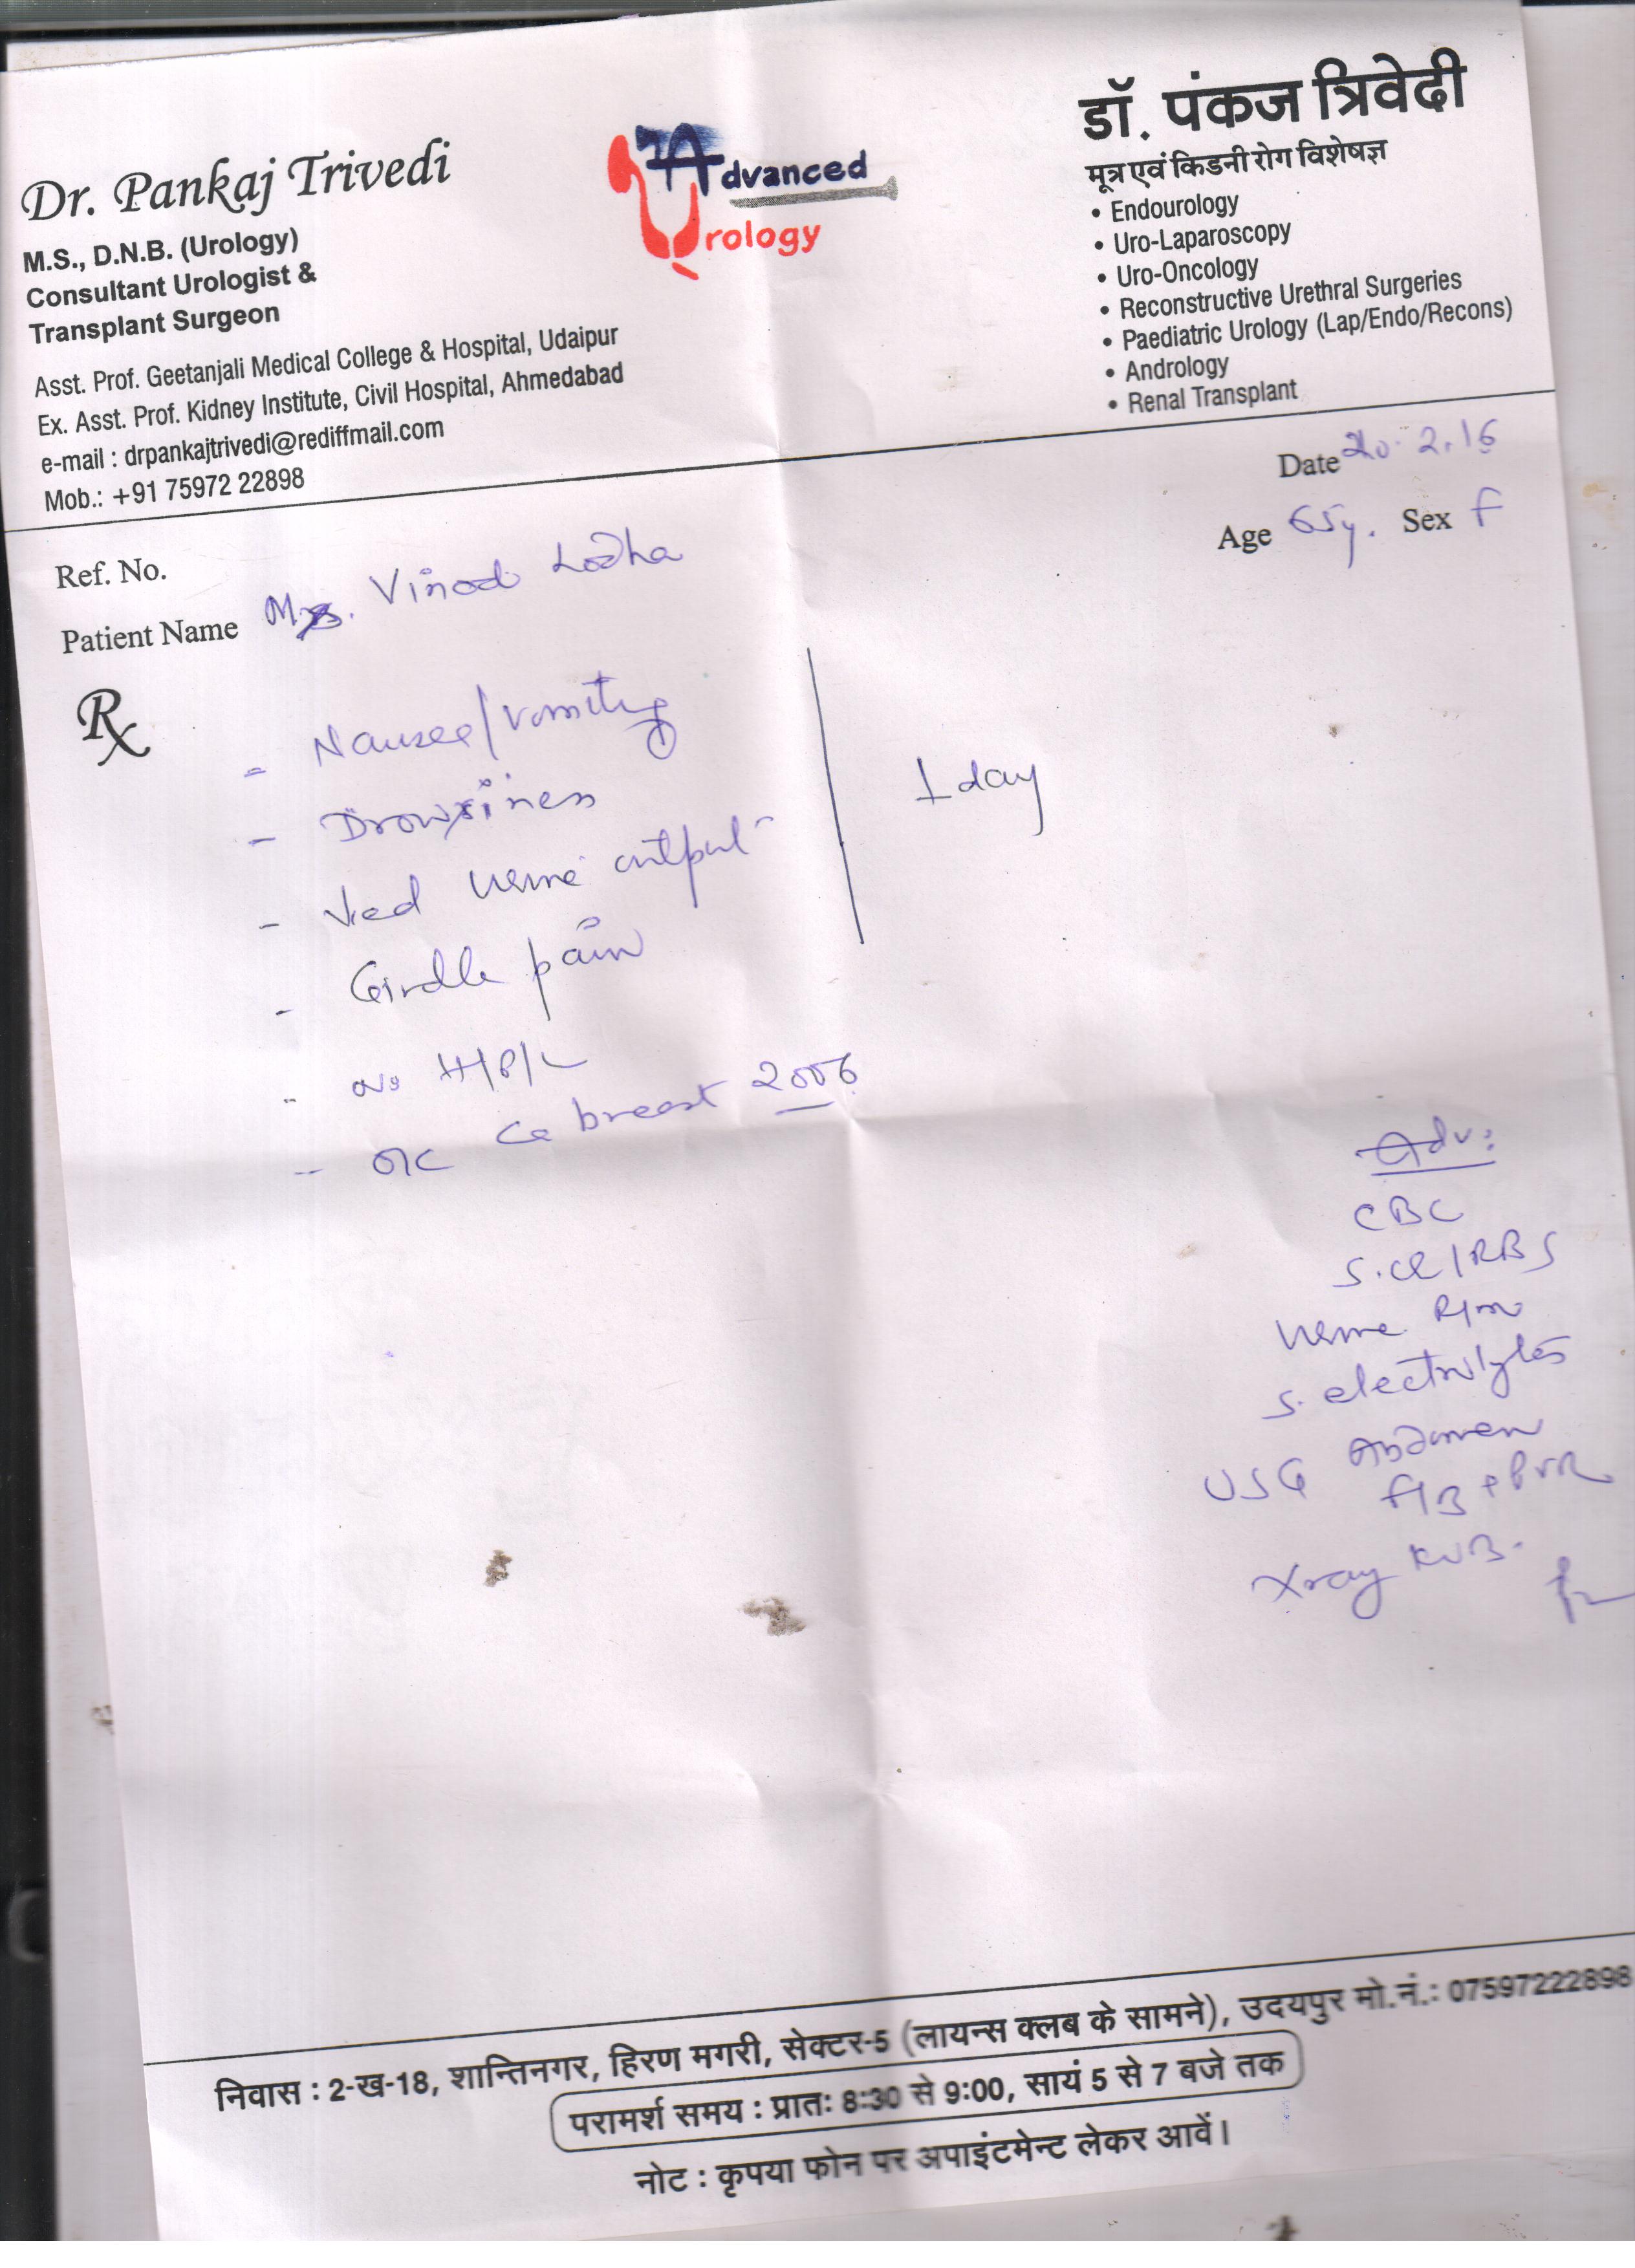 Dr. Pankaj Trivedi
M.S., D.N.B. (Urology)
Consultant Urologist &
Transplant Surgeon
Asst. Prof. Geetanjali Medical College & Hospital, Udaipur
Ex. Asst. Prof. Kidney Institute, Civil Hospital, Ahmedabad
e-mail : drpankajtrivedi@rediffmail.com
Mob.: +91 75972 22898
Advanced
Urology
डॉ. पंकज त्रिवेदी
मूत्र एवं किडनी रोग विशेषज्ञ
• Endourology
• Uro-Laparoscopy
• Uro-Oncology
• Reconstructive Urethral Surgeries
• Paediatric Urology (Lap/Endo/Recons)
• Andrology
• Renal Transplant
Date 20.2.16
Age 65y. Sex F
Ref. No.
Patient Name Mrs. Vinod Lodha
Rx
- Nausea/vomiting
- Drowsiness
- ↓ed urine output
- Girdle pain
1 day
- No H/P/L
- O/C Ca breast 2006
Adv:
CBC
S.Cr/RBS
Urine R/M
S. electrolytes
USG Abdomen
F/B + PVR
Xray KUB.
निवास : 2-ख-18, शान्तिनगर, हिरण मगरी, सेक्टर-5 (लायन्स क्लब के सामने), उदयपुर मो.नं.: 07597222898
परामर्श समय : प्रातः 8:30 से 9:00, सायं 5 से 7 बजे तक
नोट : कृपया फोन पर अपाइंटमेन्ट लेकर आवें।